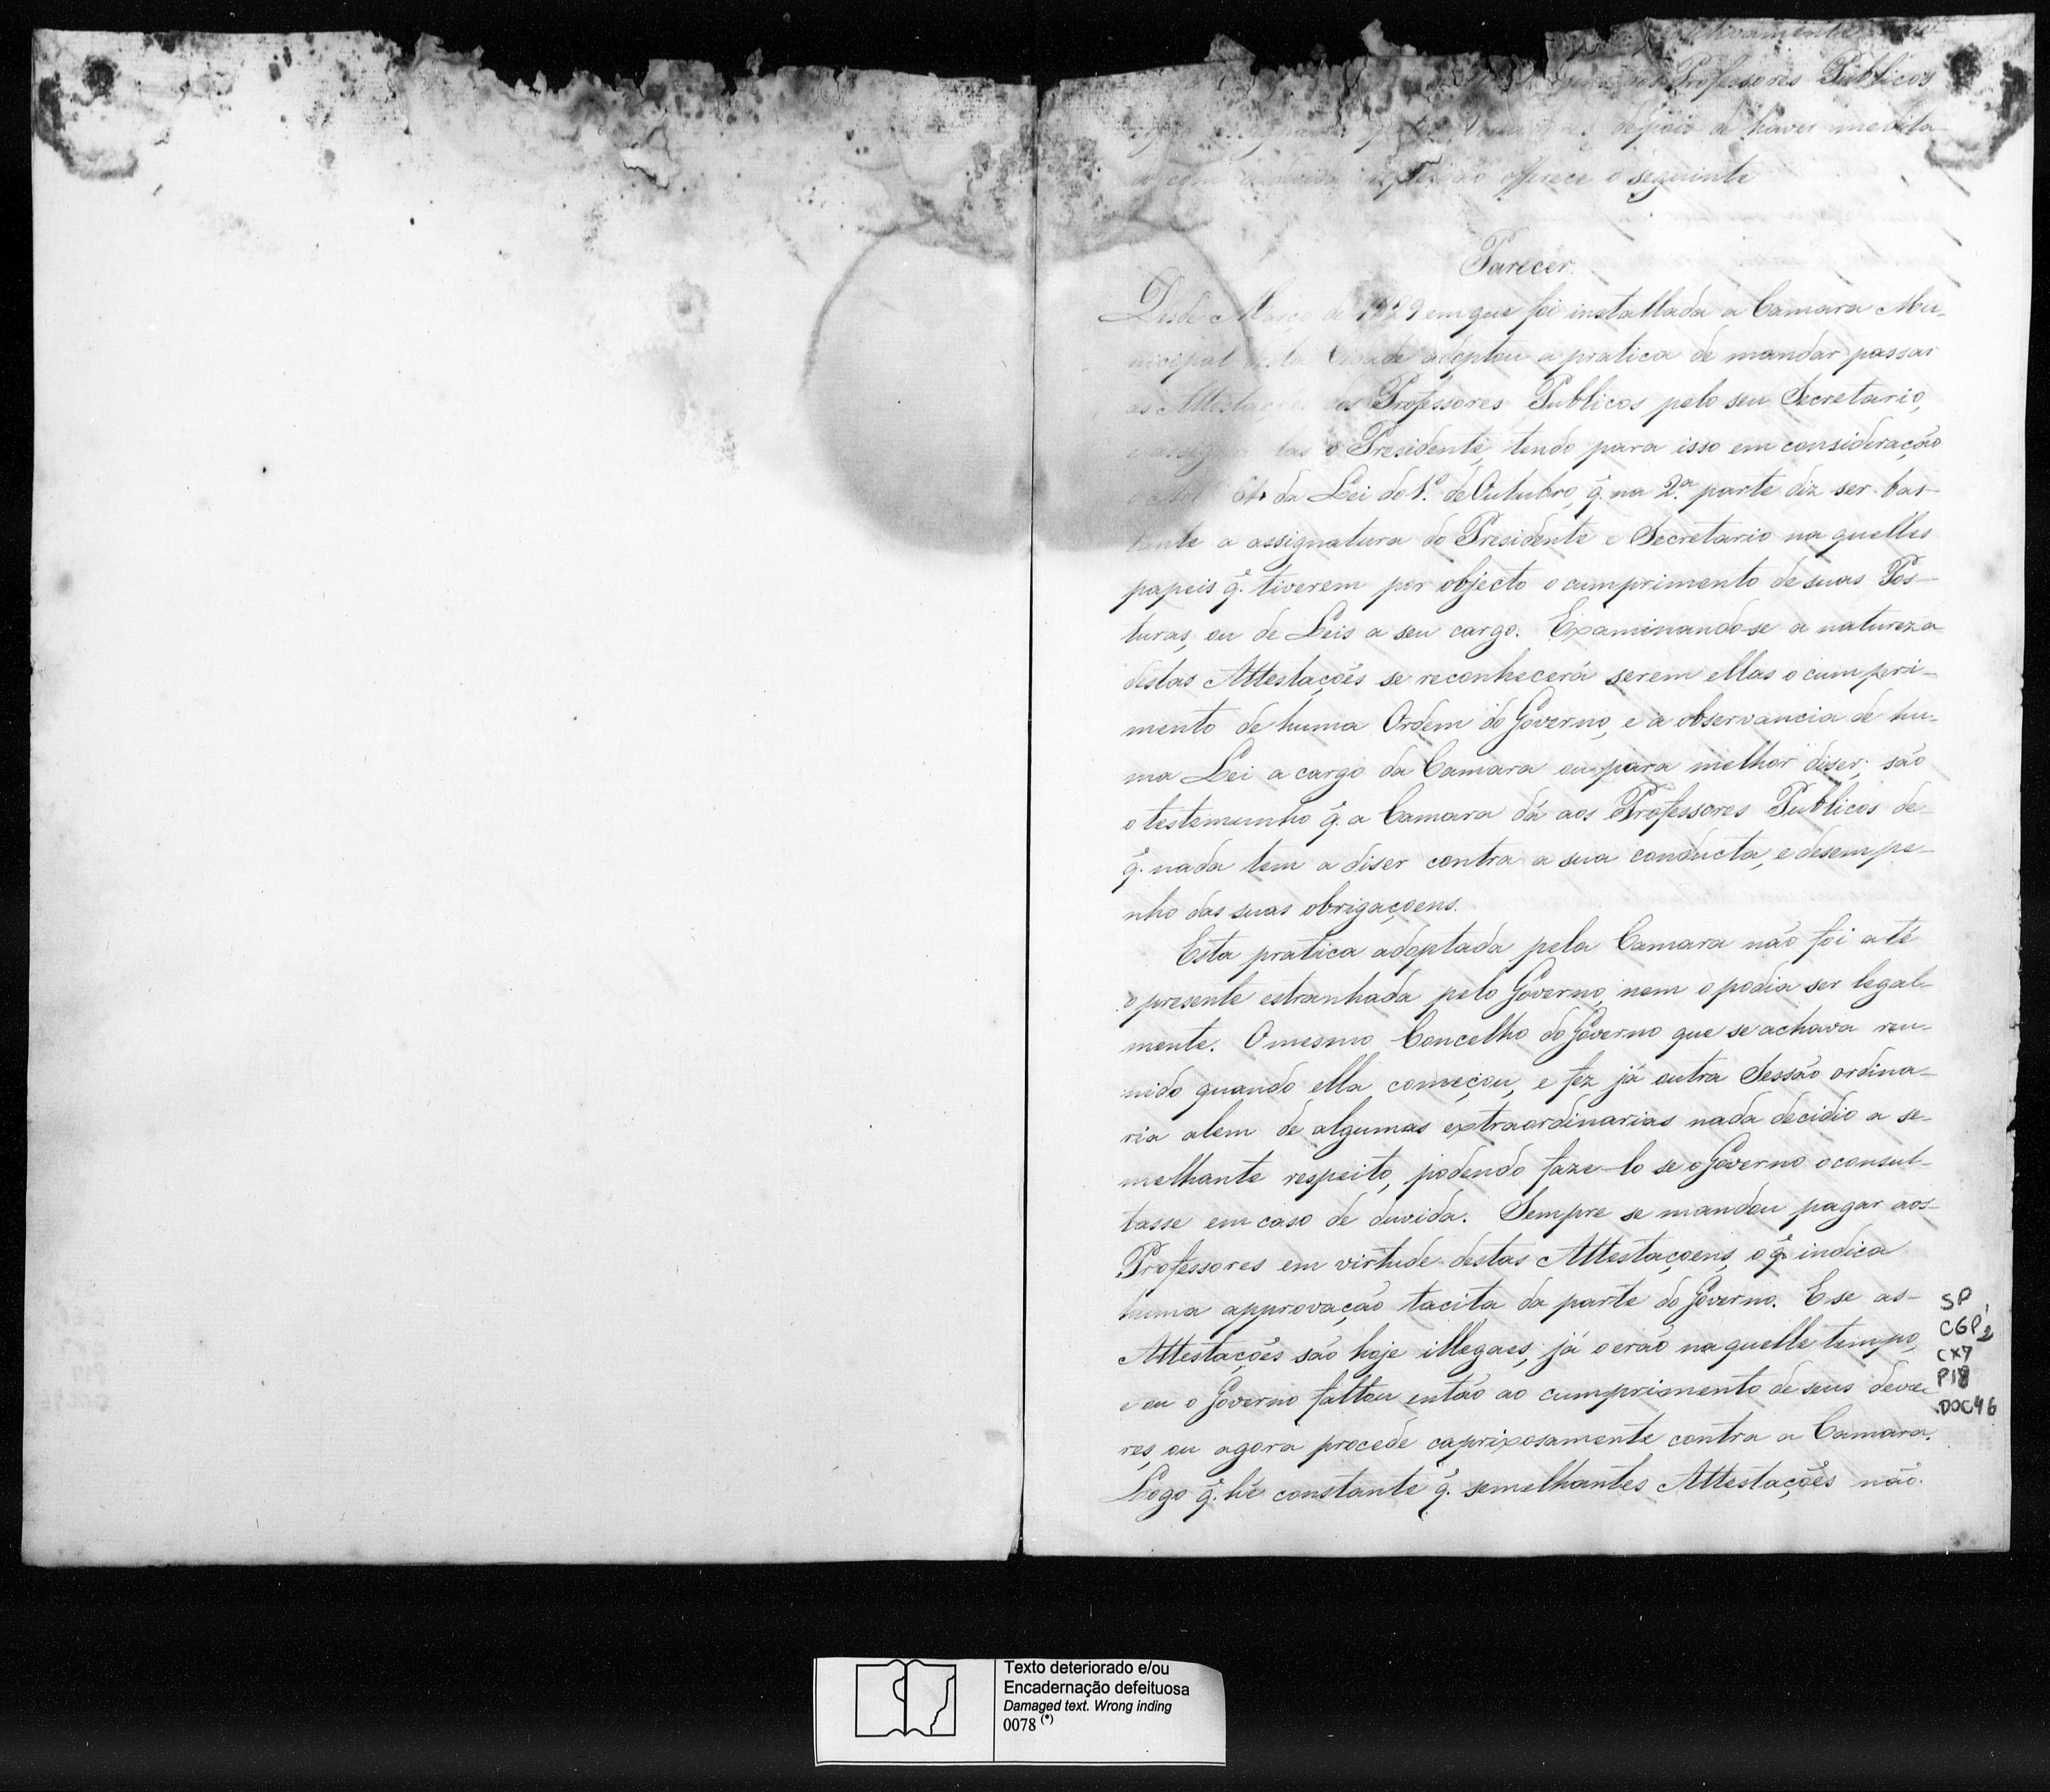 Professores Publicos
depois de haver medita-
offerece o seguinte
Parecer.
Desde Março de 1829 em que foi installada a Camara Mu-
nicipal desta Cidade adoptou a pratica de mandar passar
as Attestações dos Professores Publicos pelo seu Secretario,
o Presidente, tendo para isso em consideração
da Lei do 1.º de Outubro, q̃. na 2.ª parte diz ser bas-
tante a assignatura do Presidente e Secretario na quelles
papeis q̃. tiverem por objecto o cumprimento de suas Pos-
turas, ou de Leis a seu cargo. Examinando-se a natureza
destas Attestações se reconhecerá serem ellas o cumpri-
mento de huma Ordem do Governo, e a observancia de hu-
ma Lei a cargo da Camara ou para melhor diser, são
o testemunho q̃. a Camara dá aos Professores Publicos de-
q̃. nada tem a diser contra a sua conducta, e desempe-
nho das suas obrigaçoens.
Esta pratica adoptada pela Camara não foi até
o presente estranhada pelo Governo, nem o podia ser legal-
mente. O mesmo Concelho do Governo que se achava reu-
nido quando ella começou, e fez já outra Sessão ordina-
ria alem de algumas extraordinarias nada decidio a se-
melhante respeito, podendo faze-lo se o Governo o consul-
tasse em caso de duvida. Sempre se mandou pagar aos-
Professores em virtude destas Attestaçoens, o q̃. indica
huma approvação tacita da parte do Governo. E se as-
Attestações são hoje illegaes, já o erão naquelle tempo,
e ou o Governo faltou então ao cumprimento de seus deve-
res, ou agora procede caprixosamente contra a Camara.
Logo q̃. hé constante q̃. semelhantes Attestações não.
SP
CGP2
CX7
P18
DOC46
Texto deteriorado e/ou
Encadernação defeituosa
Damaged text. Wrong inding
0078 (*)